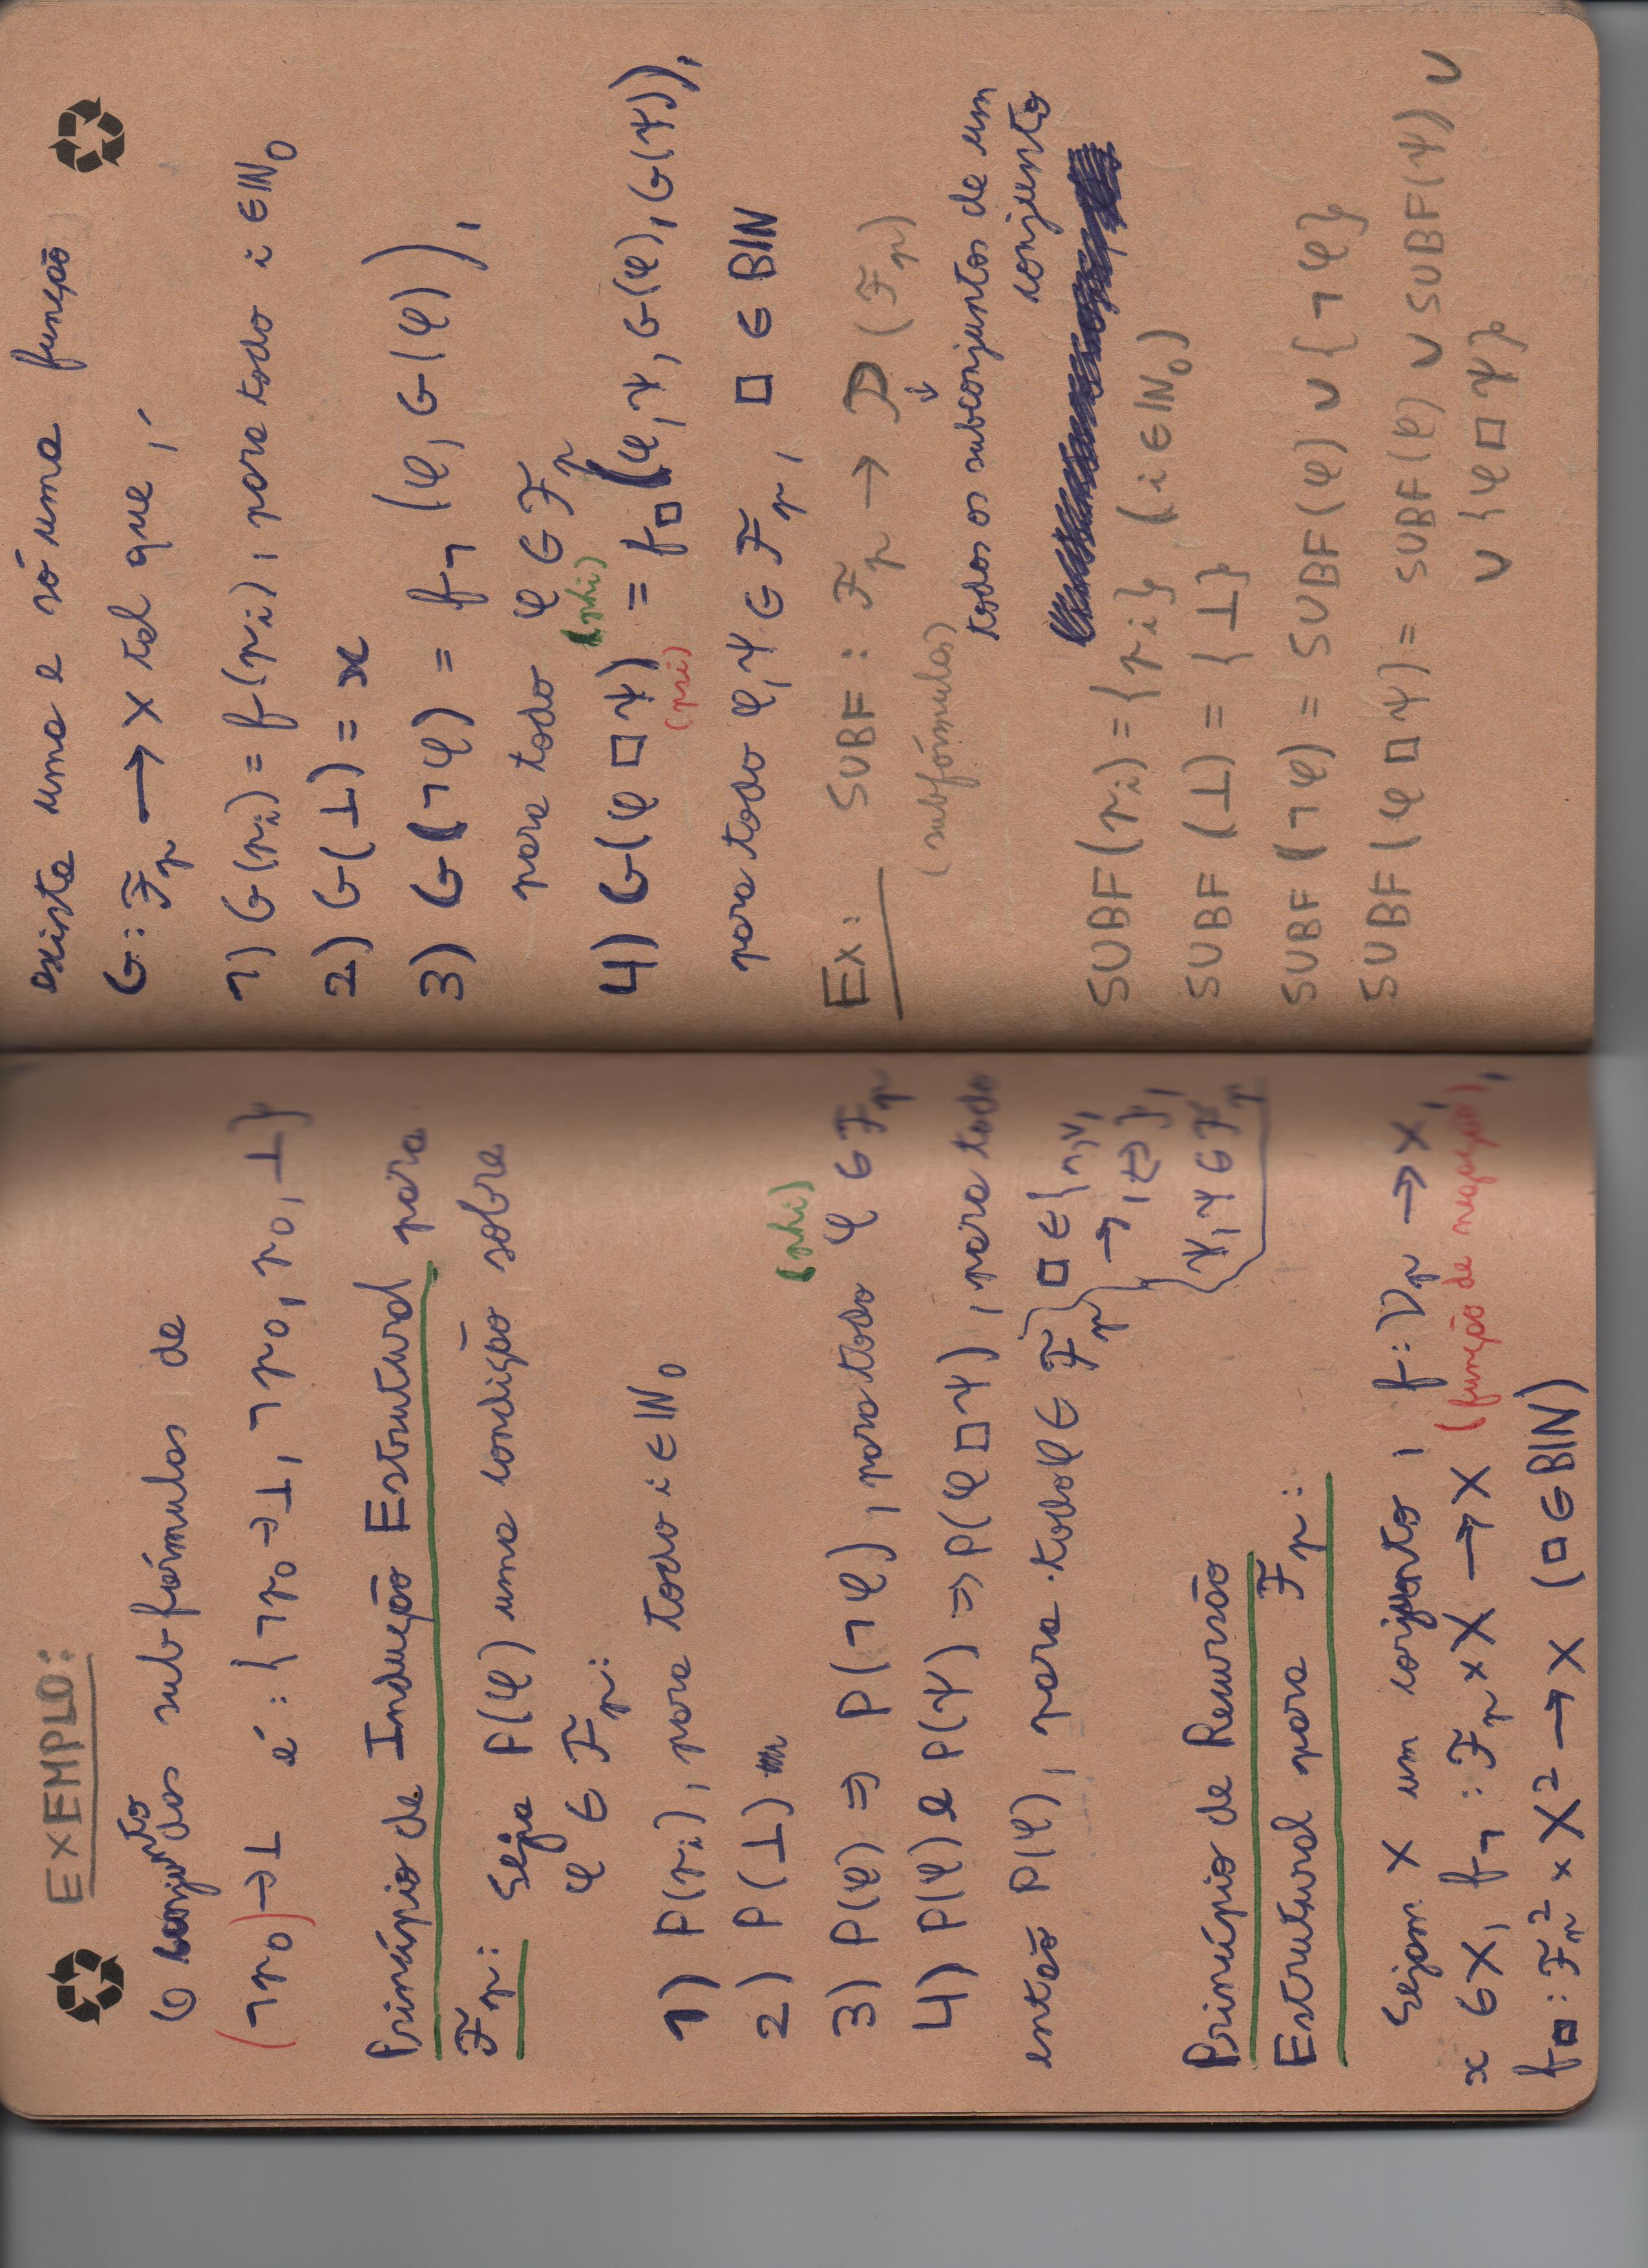 EXEMPLO:
O conjunto das subfórmulas de
(¬p₀)→⊥ é: {¬p₀→⊥, ¬p₀, p₀, ⊥}
Princípio de Indução Estrutural para
ℱₚ: Seja P(φ) uma condição sobre
φ ∈ ℱₚ:
1) P(pᵢ), para todo i ∈ ℕ₀
2) P(⊥)
(phi)
3) P(φ) ⇒ P(¬φ), para todo φ ∈ ℱₚ
4) P(φ) e P(ψ) ⇒ P(φ □ ψ), para todo
□ ∈ {∧, ∨,
→, ↔},
ψ, ψ ∈ ℱₚ
então P(φ), para todo φ ∈ ℱₚ
Princípio de Recursão
Estrutural para ℱₚ:
Sejam X um conjunto, f: 𝒱ₚ → X,
x ∈ X, f¬ : ℱₚ × X → X (função de negação),
f□ : ℱₚ² × X² → X (□ ∈ BIN)
existe uma e só uma função
G: ℱₚ → X tal que,
1) G(pᵢ) = f(pᵢ), para todo i ∈ ℕ₀
2) G(⊥) = x
3) G(¬φ) = f¬ (φ, G(φ)),
para todo φ ∈ ℱₚ
(phi)
4) G(φ □ ψ) = f□(φ, ψ, G(φ), G(ψ)),
(psi)
para todo φ, ψ ∈ ℱₚ, □ ∈ BIN
Ex: SUBF : ℱₚ → 𝒫(ℱₚ)
(subfórmulas) ↓
todos os subconjuntos de um
conjunto
SUBF(pᵢ) = {pᵢ} (i ∈ ℕ₀)
SUBF (⊥) = {⊥}
SUBF (¬φ) = SUBF(φ) ∪ {¬φ}
SUBF (φ □ ψ) = SUBF(φ) ∪ SUBF(ψ) ∪
∪ {φ □ ψ}